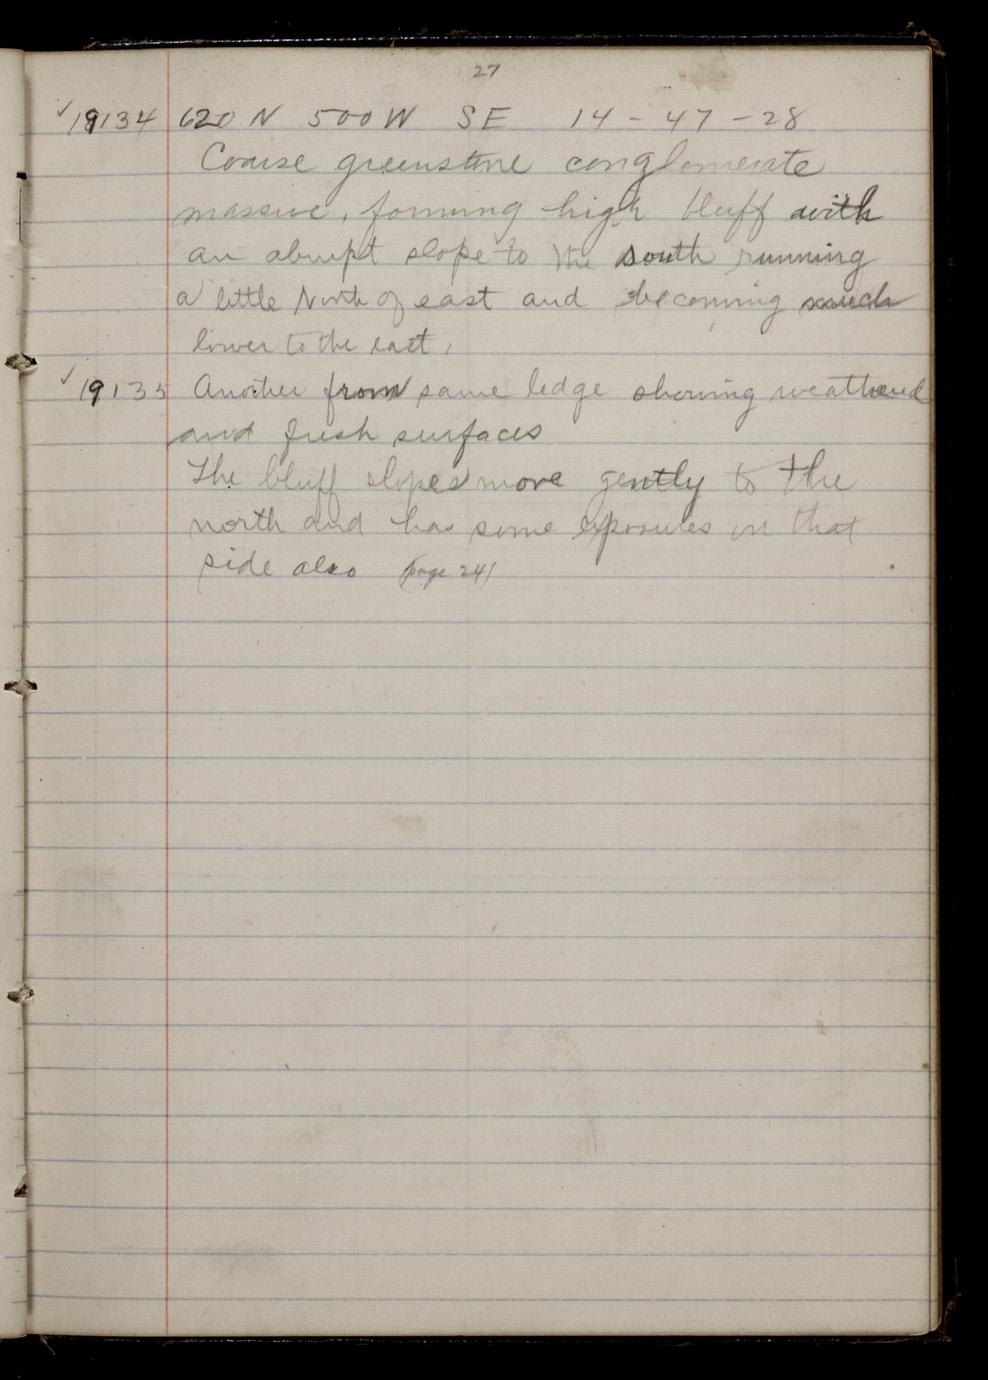 27
✓19134 620 N 500 W SE 14 - 47 - 28
Coarse greenstone conglomerate
massive, forming high bluff with
an abrupt slope to the south running
a little North of east and becoming much
lower to the east,
✓19135 Another from same ledge showing weathered
and fresh surfaces
The bluff slopes more gently to the
north and has some exposures on that
side also (page 24)